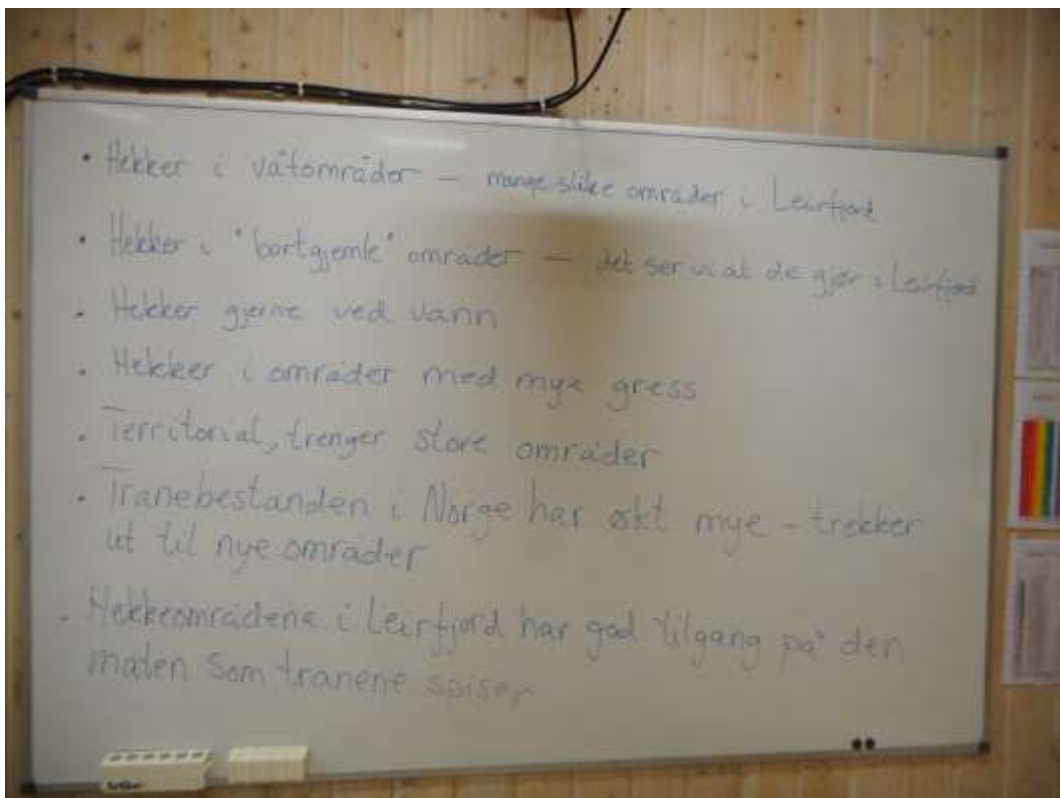 • Hekker i våtområder – mange slike områder i Leirfjord
• Hekker i "bortgjemte" områder – det ser vi at de gjør i Leirfjord
• Hekker gjerne ved vann
• Hekker i områder med mye gress
• Territorial, trenger store områder
• Tranebestanden i Norge har økt mye – trekker
ut til nye områder
• Hekkeområdene i Leirfjord har god tilgang på den
maten som tranene spiser